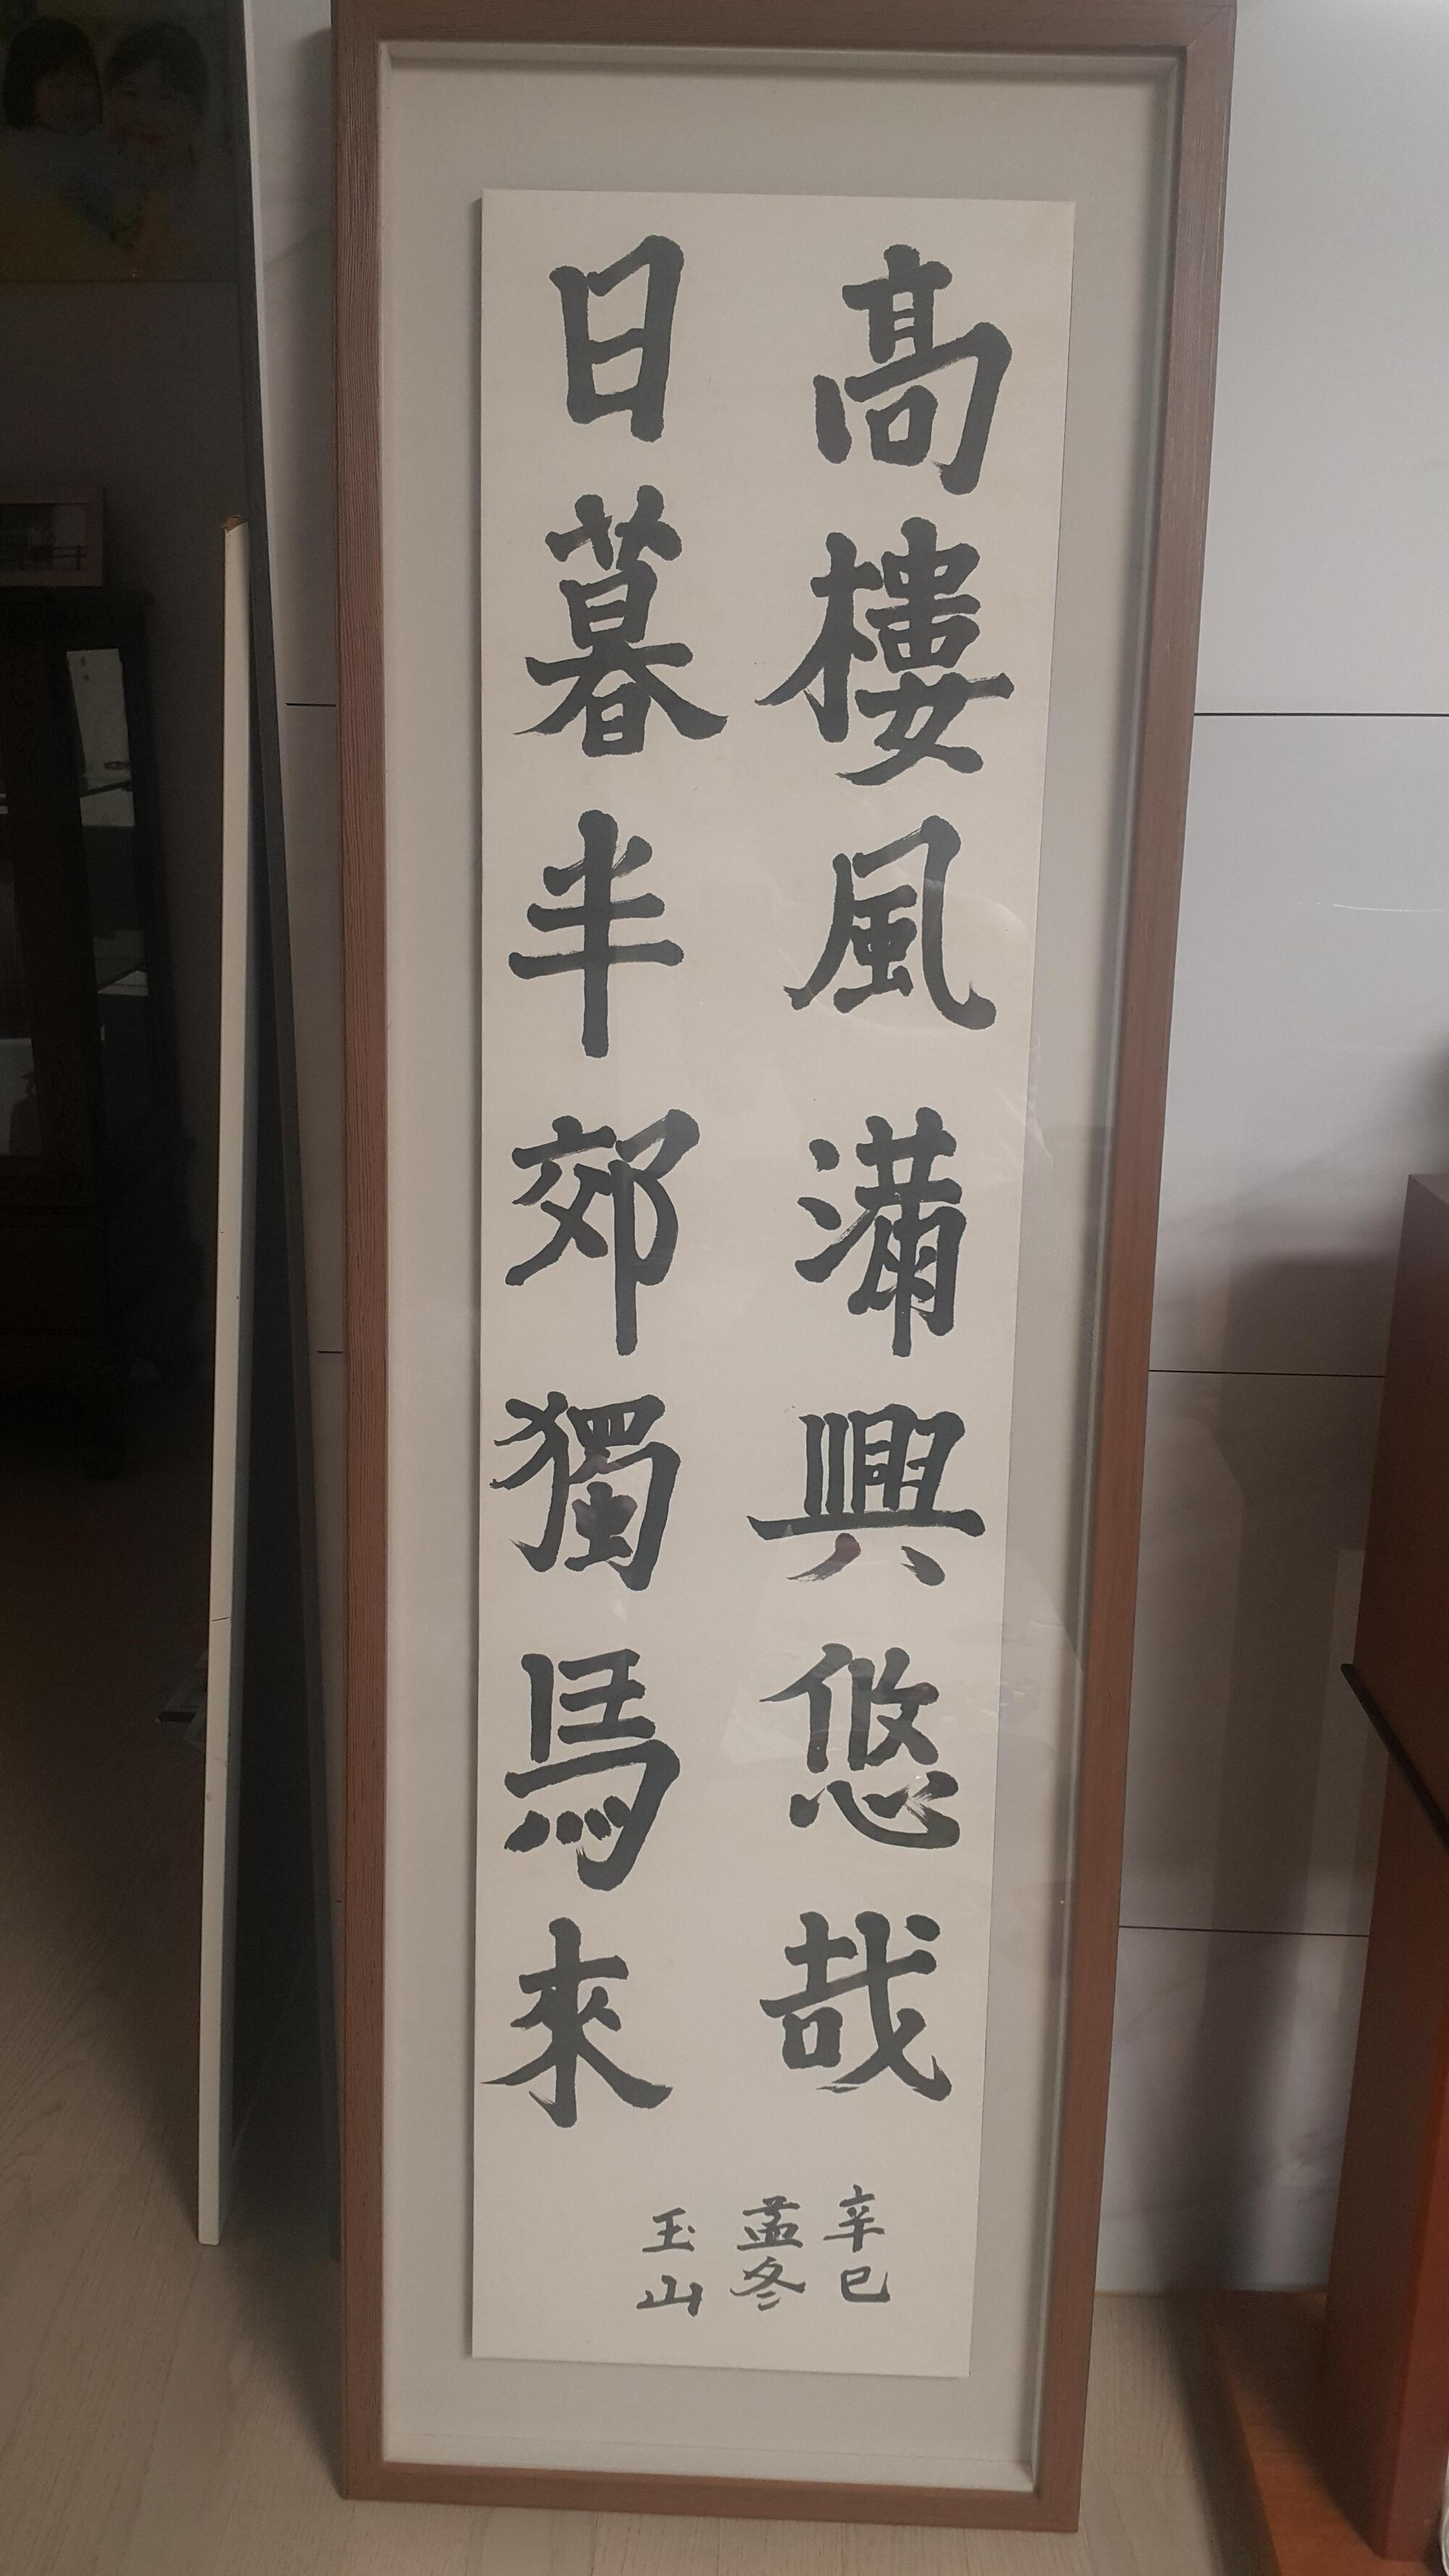 高樓風滿興悠哉
日暮半郊獨馬來
辛巳
孟冬
玉山